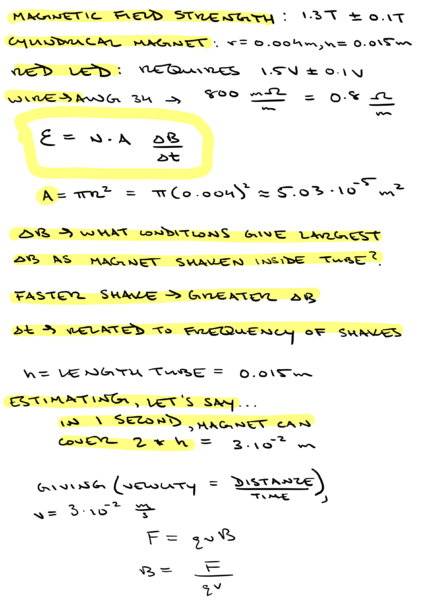 MAGNETIC FIELD STRENGTH: 1.3T ± 0.1T
CYLINDRICAL MAGNET: r = 0.004m, h = 0.015m
RED LED: REQUIRES 1.5V ± 0.1V
WIRE → AWG 34 → 800 mΩ/m = 0.8 Ω/m
ℰ = N · A ΔB/Δt
A = πr² = π(0.004)² ≈ 5.03·10⁻⁵ m²
ΔB → WHAT CONDITIONS GIVE LARGEST
ΔB AS MAGNET SHAKEN INSIDE TUBE?
FASTER SHAKE → GREATER ΔB
Δt → RELATED TO FREQUENCY OF SHAKES
h = LENGTH TUBE = 0.015m
ESTIMATING, LET'S SAY...
IN 1 SECOND, MAGNET CAN
COVER 2 * h = 3·10⁻² m
GIVING (VELOCITY = DISTANZE/TIME),
v = 3·10⁻² m/s
F = qvB
B = F/qv